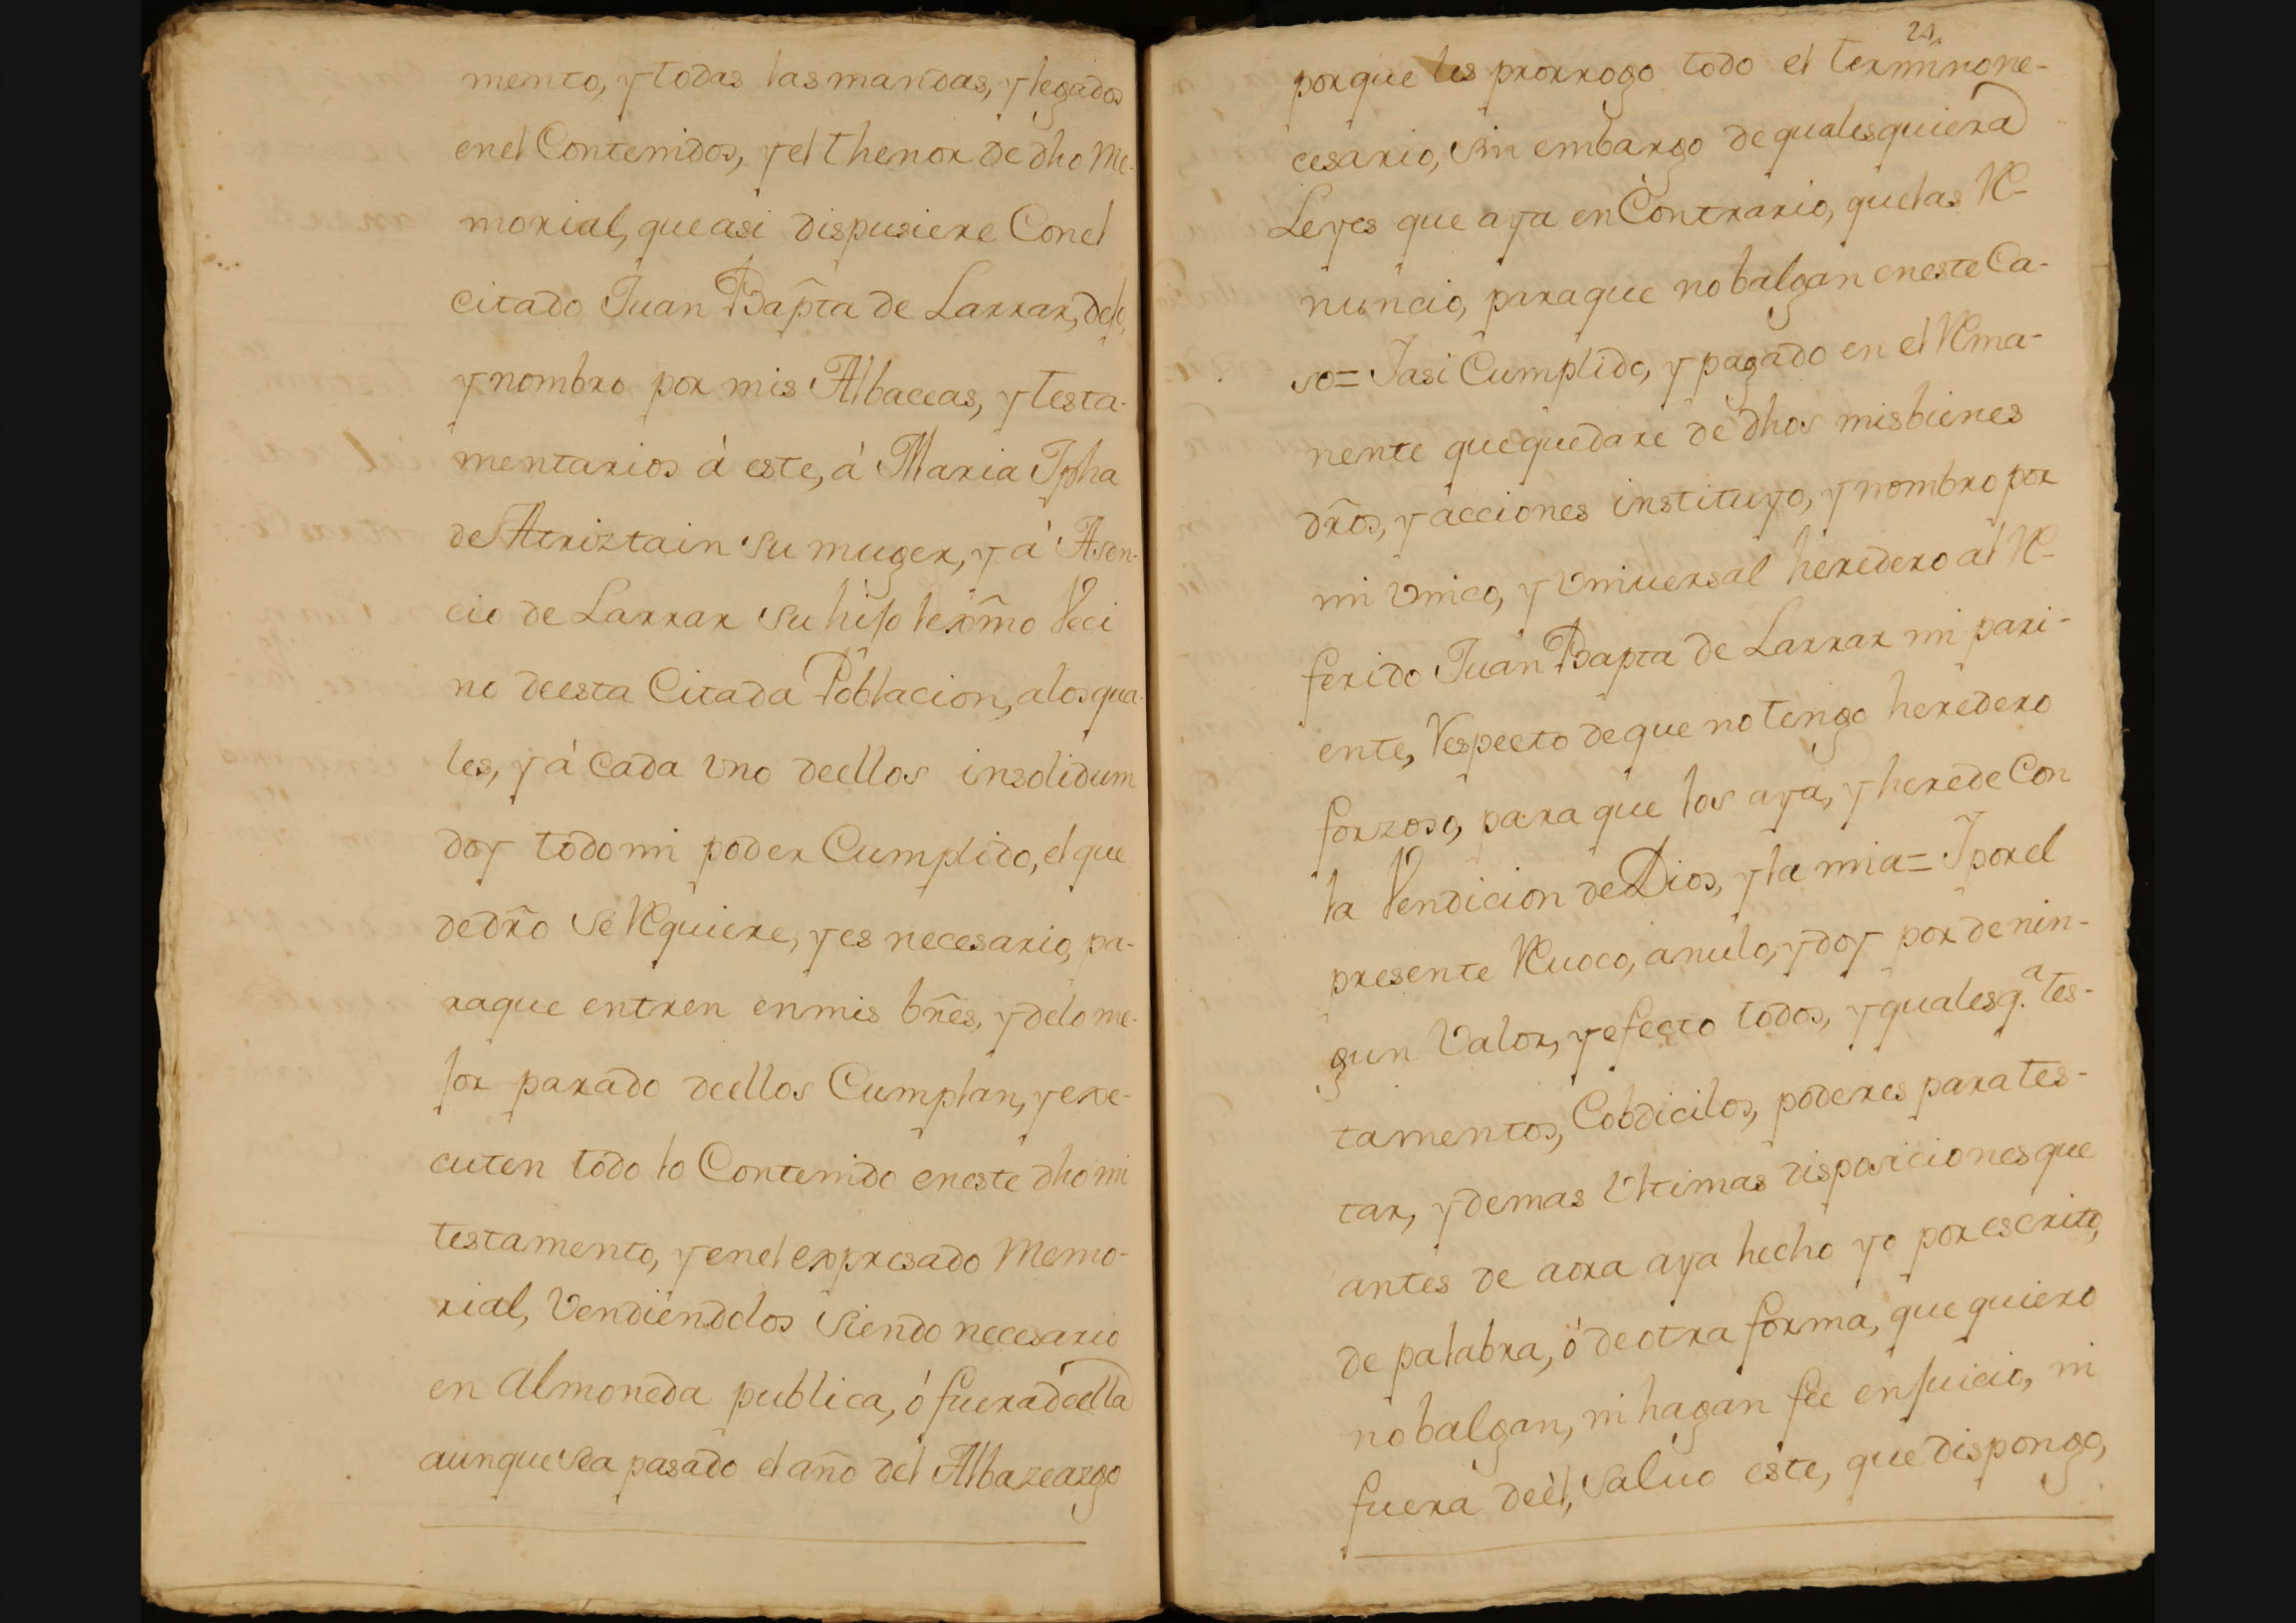 mento, y todas las mandas, y legados
en el Contenidos, y el thenor de dho Me-
morial, que asi dispusiere Con el
citado Juan Bapta de Larrar, dejo,
y nombro por mis Albaceas, y testa-
mentarios à este, à Maria Jpha
de Atriztain su muger, y à Asen-
cio de Larrar su hijo lexmo Veci
no de esta Citada Poblacion, a los qua-
les, y à Cada uno de ellos insolidum
doy todo mi poder Cumplido, el que
de dro se Requiere, y es necesario, pa-
ra que entren en mis bnes, y de lo me-
jor parado de ellos Cumplan, y exe-
cuten todo lo Contenido en este dho mi
testamento, y en el expresado Memo-
rial, Vendiendolos siendo necesario
en Almoneda publica, ó fuera de ella
aunque sea pasado el año del Albazeazgo
21.
porque les prorrogo todo el termino ne-
cesario, sin embargo de qualesquiera
Leyes que aya en Contrario, que las Re-
nuncio, para que no balgan en este Ca-
so= Y asi Cumplido, y pagado en el Rema-
nente que quedare de dhos mis bienes
dros, y acciones instituyo, y nombro por
mi Unico, y Universal heredero al Re-
ferido Juan Bapta de Larrar mi pari-
ente, Respecto de que no tengo heredero
forzoso, para que los aya, y herede Con
la Vendicion de Dios, y la mia= Y por el
presente Reuoco, anulo, y doy por de nin-
gun Valor, y efecto todos, y qualesq.ª tes-
tamentos, Cobdicilos, poderes para tes-
tar, y demas Ultimas disposiciones que
antes de aora aya hecho yo por escrito,
de palabra, ó de otra forma, que quiero
no balgan, ni hagan fee en juicio, ni
fuera de èl, saluo este, que dispongo,